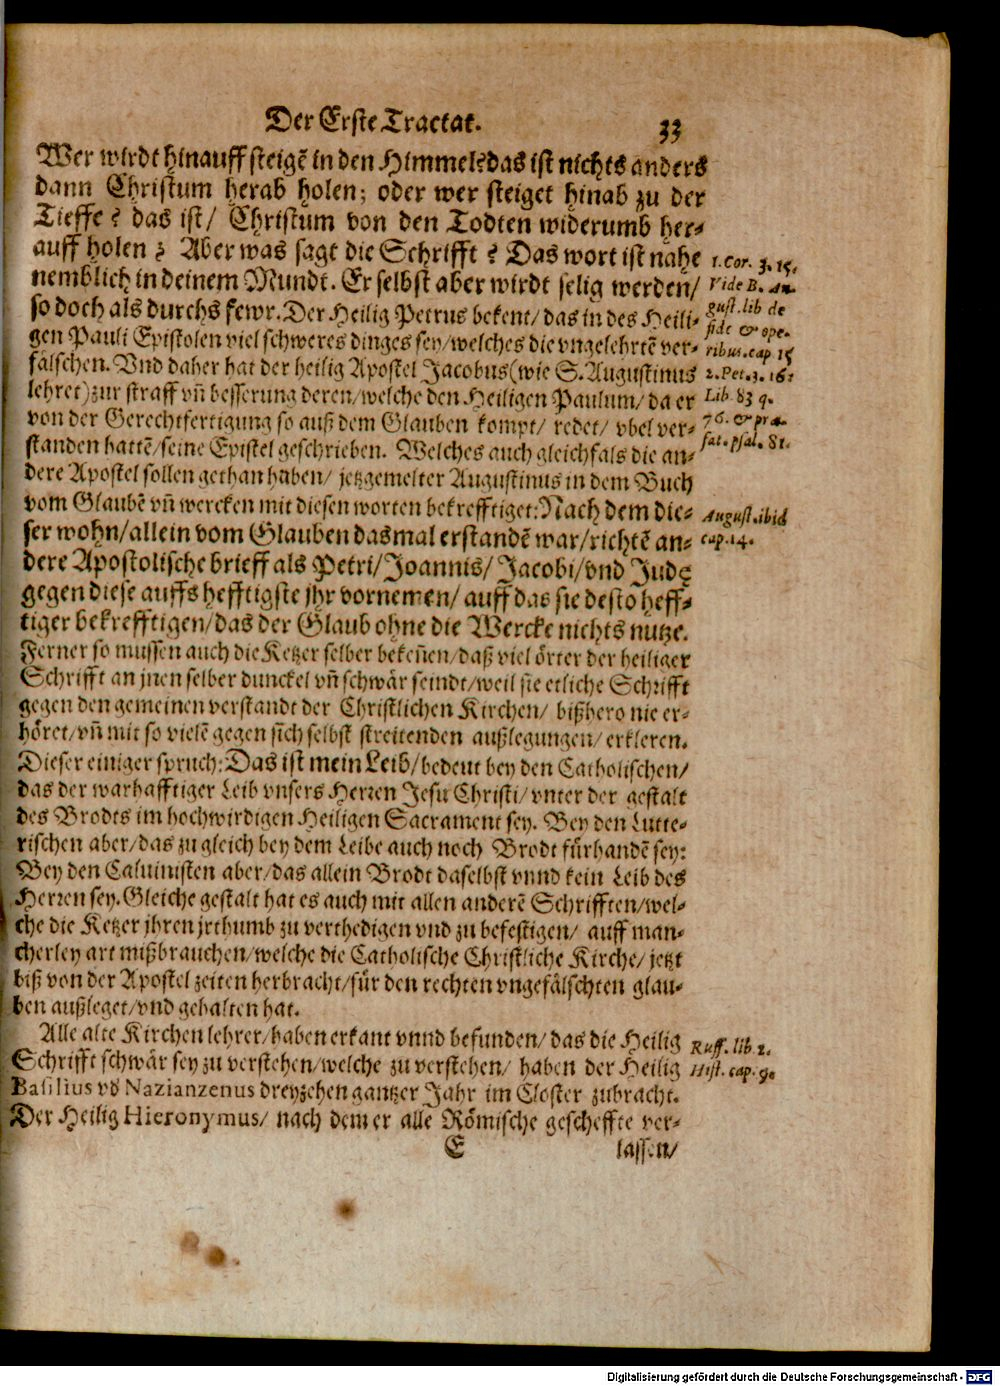 Der Erste Tractat. 33
Wer wirdt hinauff steigē in den Himmel? das ist nichts anders
dann Christum herab holen; oder wer steiget hinab zu der
Tieffe? das ist/ Christum von den Todten widerumb her-
auff holen? Aber was sagt die Schrifft? Das wort ist nahe
nemblich in deinem Mundt. Er selbst aber wirdt selig werden/
so doch als durchs fewr. Der Heilig Petrus bekent/ das in des Heili-
gen Pauli Epistolen viel schweres dinges sey/ welches die vngelehrtē ver-
fälschen. Vnd daher hat der heilig Apostel Jacobus (wie S. Augustinus
lehret) zur straff vn̄ besserung deren/ welche den Heiligen Paulum/ da er
von der Gerechtfertigung so auß dem Glauben kompt/ redet/ vbel ver-
standen hattē/ seine Epistel geschrieben. Welches auch gleichfals die an-
dere Apostel sollen gethan haben/ jetzgemelter Augustinus in dem Buch
vom Glaubē vn̄ wercken mit diesen worten bekrefftiget: Nach dem die-
ser wohn/ allein vom Glauben dasmal erstandē war/ richtē an-
dere Apostolische brieff als Petri/ Joannis/ Jacobi/ vnd Judę
gegen diese auffs hefftigste jhr vornemen/ auff das sie desto heff-
tiger bekrefftigen/ das der Glaub ohne die Wercke nichts nutze.
Ferner so mussen auch die Ketzer selber bekeñen/ daß viel örter der heiliger
Schrifft an jnen selber dunckel vn̄ schwär seindt/ weil sie etliche Schrifft
gegen den gemeinen verstandt der Christlichen Kirchen/ bißhero nie er-
höret/ vn̄ mit so vielē gegen sich selbst streitenden außlegungen/ erkleren.
Dieser einiger spruch: Das ist mein Leib/ bedeut bey den Catholischen/
das der warhafftiger Leib vnsers Herren Jesu Christi/ vnter der gestalt
des Brodts im hochwirdigen Heiligen Sacrament sey. Bey den Lutte-
rischen aber/ das zu gleich bey dem Leibe auch noch Brodt fürhandē sey:
Bey den Caluinisten aber/ das allein Brodt daselbst vnnd kein Leib des
Herren sey. Gleiche gestalt hat es auch mit allen anderē Schrifften/ wel-
che die Ketzer jhren jrthumb zu verthedigen vnd zu befestigen/ auff man-
cherley art mißbrauchen/ welche die Catholische Christliche Kirche/ jetzt
biß von der Apostel zeiten herbracht/ für den rechten vngefälschten glau-
ben außleget/ vnd gehalten hat.
Alle alte Kirchen lehrer/ haben erkant vnnd befunden/ das die Heilig
Schrifft schwär sey zu verstehen/ welche zu verstehen/ haben der Heilig
Basilius vn̄ Nazianzenus dreyzehen gantzer Jahr im Closter zubracht.
Der Heilig Hieronymus/ nach dem er alle Römische gescheffte ver-
E lassen/
1. Cor. 3. 15.
Vide B. Au-
gust. lib de
fide & ope-
ribus. cap 15
2. Pet. 3. 16.
Lib. 83 q.
76. & præ-
fat. psal. 81.
August. ibid
cap. 14.
Ruff. lib 2.
Hist. cap. 9.
Digitalisierung gefördert durch die Deutsche Forschungsgemeinschaft - DFG